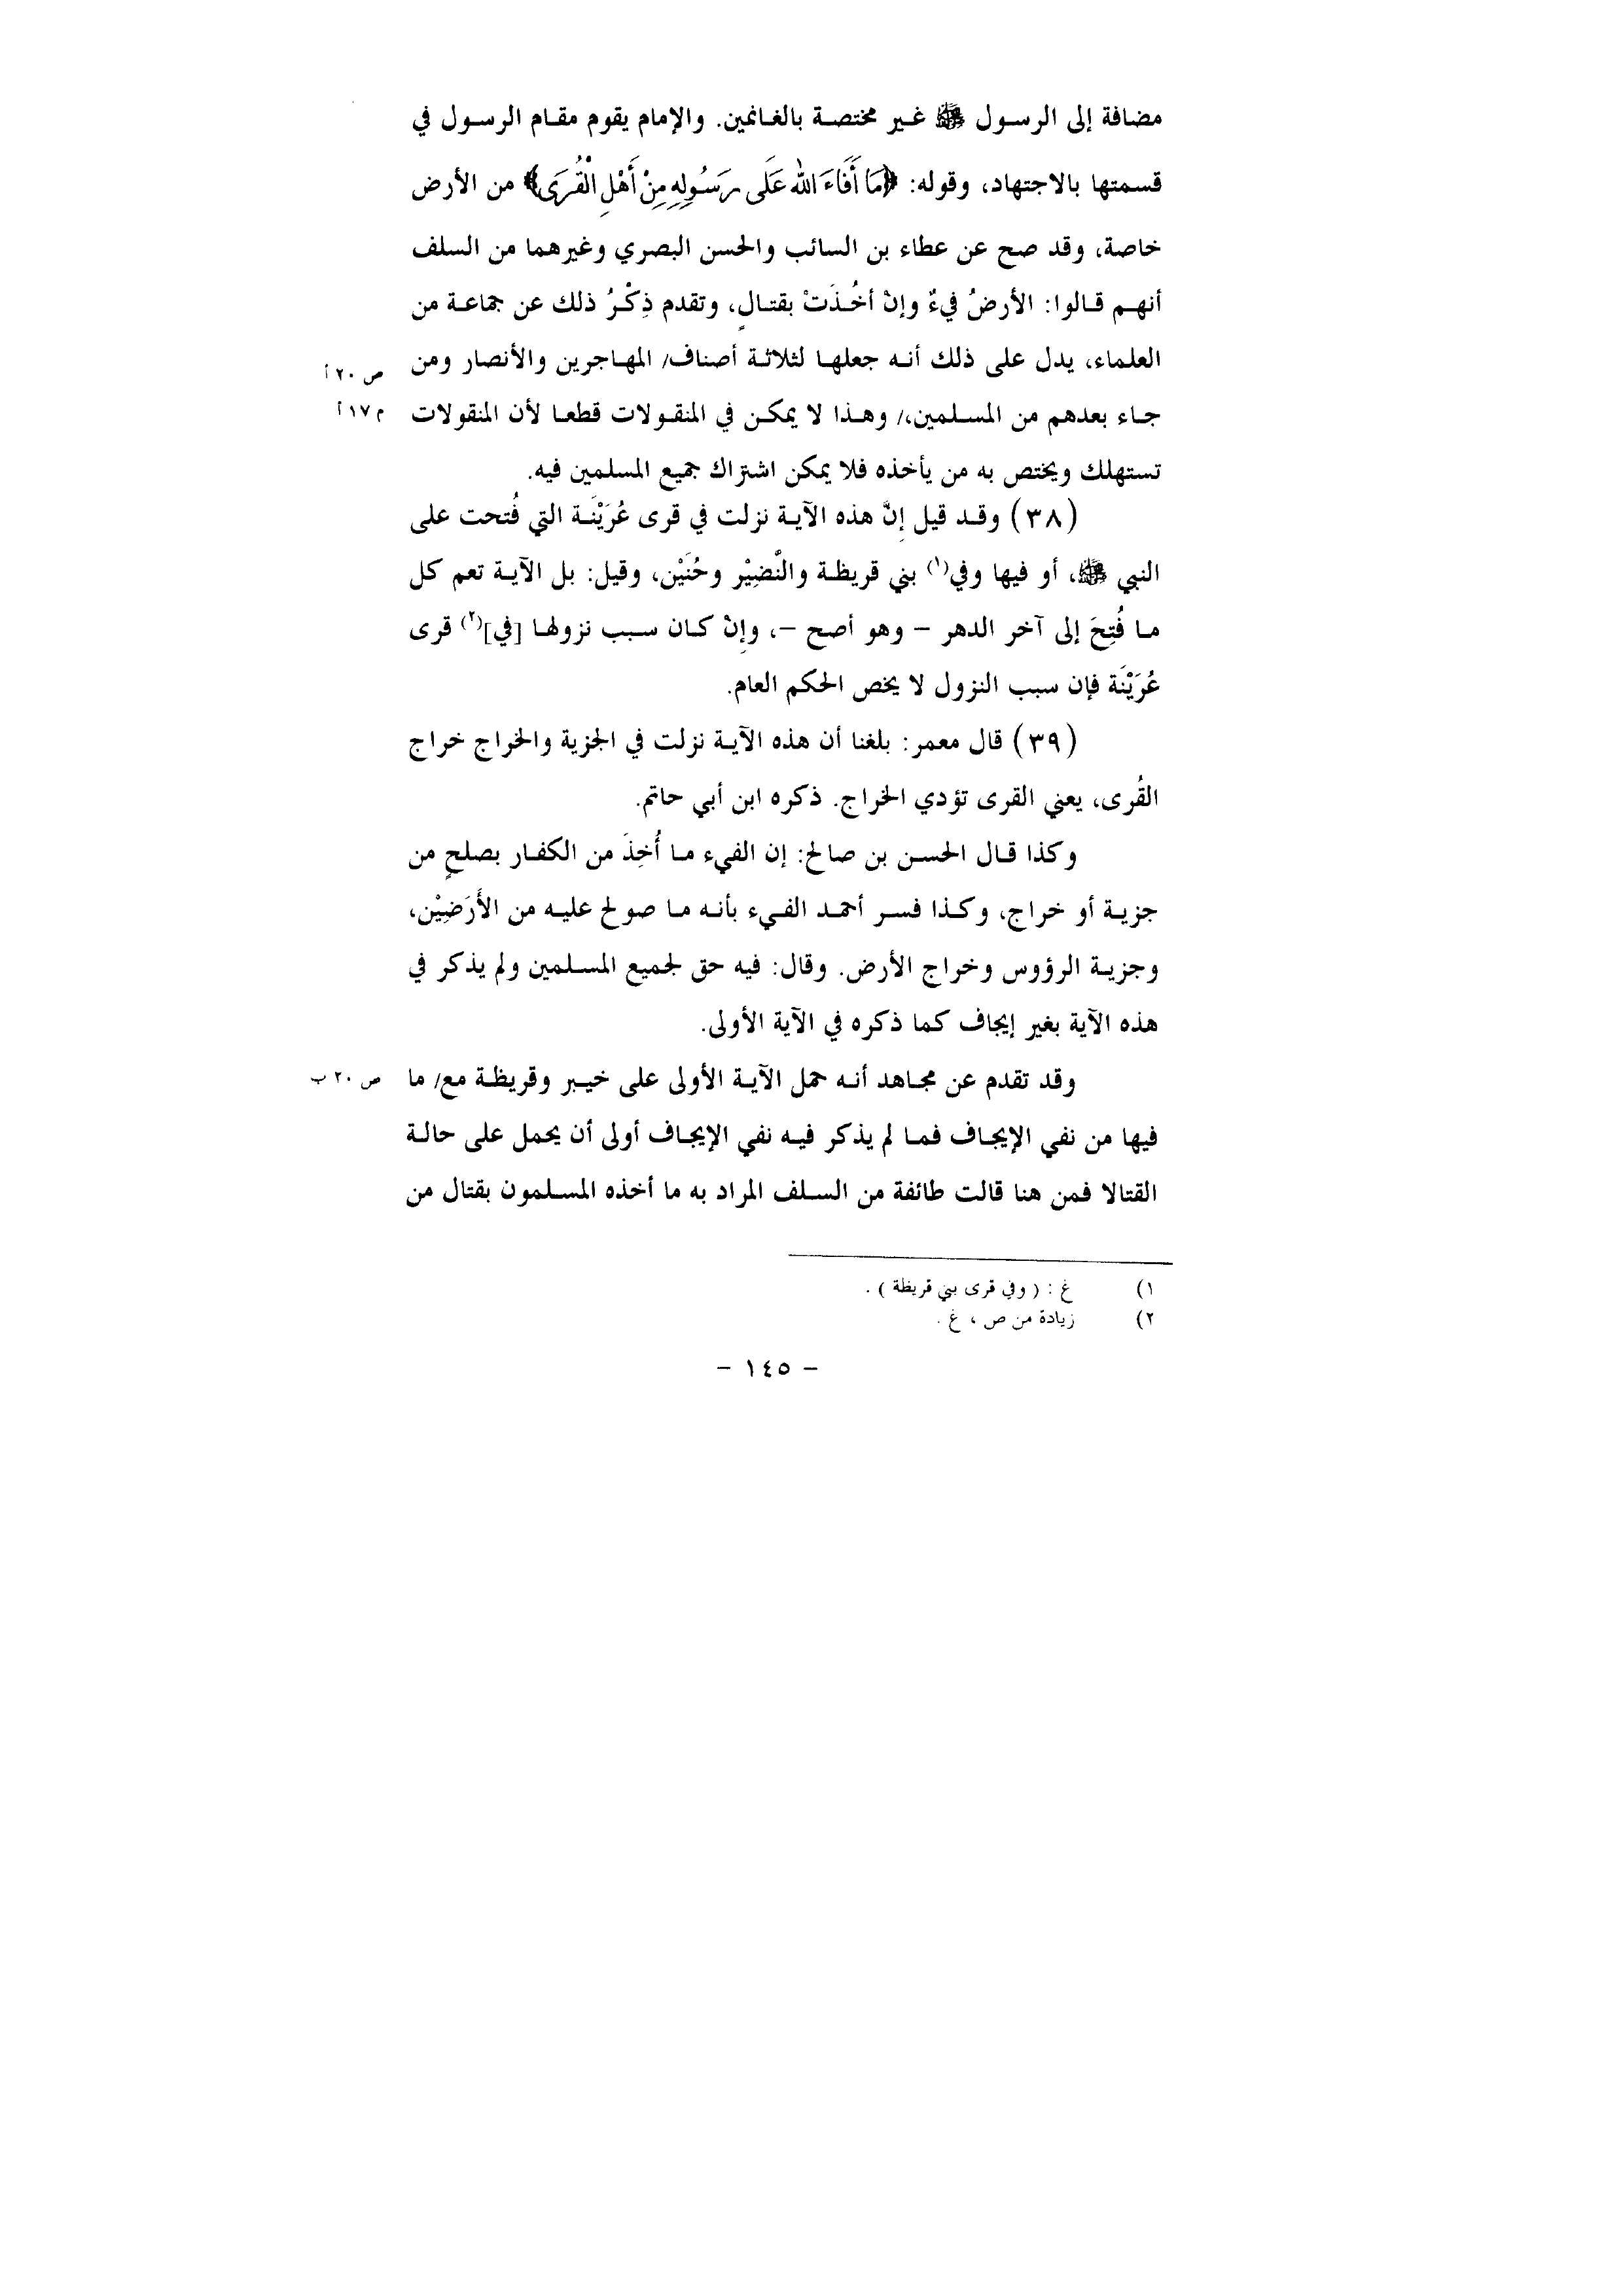 مضافة إلى الرسول ﷺ غير مختصة بالغانمين. والإمام يقوم مقام الرسول في
قسمتها بالاجتهاد، وقوله: ﴿مَا أَفَاءَ اللهُ عَلَى رَسُولِهِ مِنْ أَهْلِ الْقُرَى﴾ من الأرض
خاصة، وقد صح عن عطاء بن السائب والحسن البصري وغيرهما من السلف
أنهم قالوا: الأرضُ فيءٌ وإنْ أُخُذَتْ بقتالٍ، وتقدم ذِكْرُ ذلك عن جماعة من
العلماء، يدل على ذلك أنه جعلها لثلاثة أصناف/ المهاجرين والأنصار ومن
ص ٢٠ أ
جاء بعدهم من المسلمين،/ وهذا لا يمكن في المنقولات قطعا لأن المنقولات
م ١٧ أ
تستهلك ويختص به من يأخذه فلا يمكن اشتراك جميع المسلمين فيه.
(٣٨) وقد قيل إنَّ هذه الآية نزلت في قرى عُرَيْنَة التي فُتحت على
النبي ﷺ، أو فيها وفي(١) بني قريظة والنَّضِيْر وحُنَيْن، وقيل: بل الآية تعم كل
ما فُتِحَ إلى آخر الدهر – وهو أصح –، وإنْ كان سبب نزولها [في](٢) قرى
عُرَيْنَة فإن سبب النزول لا يخص الحكم العام.
(٣٩) قال معمر: بلغنا أن هذه الآية نزلت في الجزية والخراج خراج
القُرى، يعني القرى تؤدي الخراج. ذكره ابن أبي حاتم.
وكذا قال الحسن بن صالح: إن الفيء ما أُخِذَ من الكفار بصلحٍ من
جزية أو خراج، وكذا فسر أحمد الفيء بأنه ما صولح عليه من الأَرَضِيْن،
وجزية الرؤوس وخراج الأرض. وقال: فيه حق لجميع المسلمين ولم يذكر في
هذه الآية بغير إيجاف كما ذكره في الآية الأولى.
وقد تقدم عن مجاهد أنه حمل الآية الأولى على خيبر وقريظة مع/ ما
ص ٢٠ ب
فيها من نفي الإيجاف فما لم يذكر فيه نفي الإيجاف أولى أن يحمل على حالة
القتالا فمن هنا قالت طائفة من السلف المراد به ما أخذه المسلمون بقتال من
١) غ : ( وفي قرى بني قريظة ) .
٢) زيادة من ص ، غ .
– ١٤٥ –